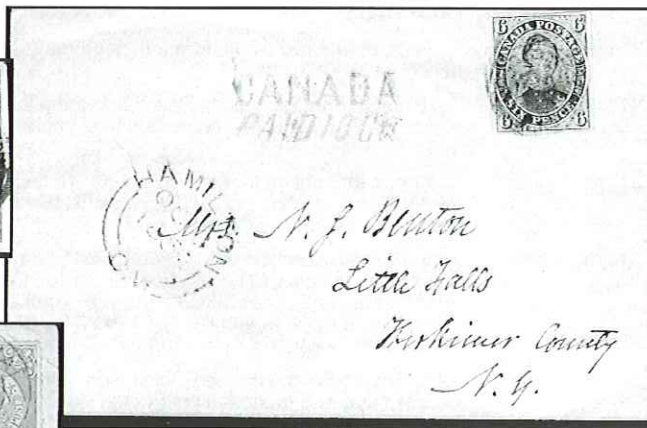 6 CANADA POSTAGE 6
6 SIX PENCE 6
CANADA
PAID 10 Cts
HAMILTON
Mrs. N. S. Benton
Little Falls
Herkimer County
N. Y.